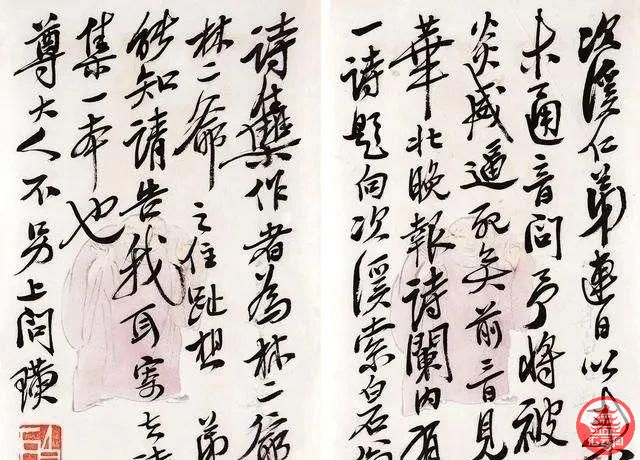 次溪仁弟連日以
未通音問予將被
炎威逼死矣前三日見
華北晚報詩闌内有
一詩題向次溪索白石翁
詩集作者為林二爺
林二爺之住趾想 弟
能知請告我耳寄去詩
集一本也
尊大人不另上問 璜